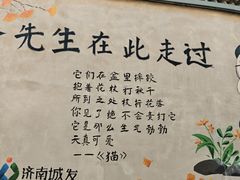 先生在此走过
它们在盆里摔跤
抱着花枝打秋千
所到之处枝折花落
你见了绝不会责打它
它是那么生气勃勃
天真可爱
——《猫》
济南城发